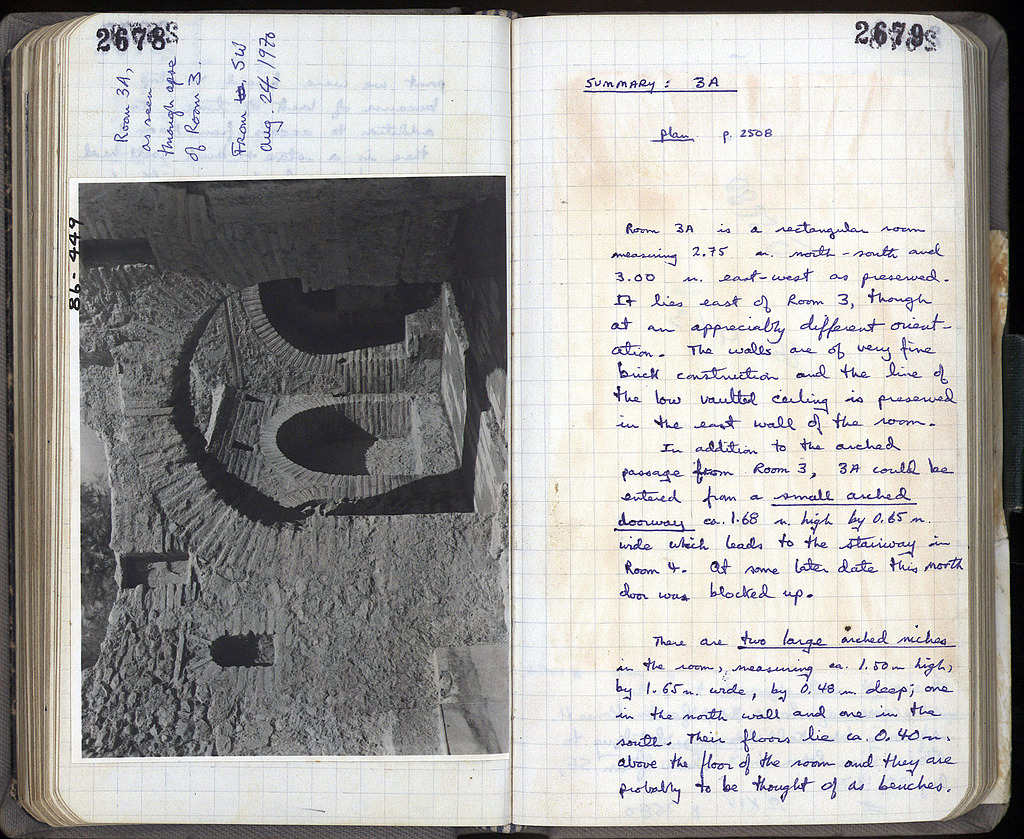 2678
Room 3A,
as seen
through apse
of Room 3.
From SW
Aug. 24, 1970
86-449
2679
SUMMARY: 3A
plan p. 2508
Room 3A is a rectangular room
measuring 2.75 m. north-south and
3.00 m. east-west as preserved.
It lies east of Room 3, though
at an appreciably different orient-
ation. The walls are of very fine
brick construction and the line of
the low vaulted ceiling is preserved
in the east wall of the room.
In addition to the arched
passage from Room 3, 3A could be
entered from a small arched
doorway ca. 1.68 m. high by 0.65 m.
wide which leads to the stairway in
Room 4. At some later date this north
door was blocked up.
There are two large arched niches
in the room, measuring ca. 1.50 m high,
by 1.65 m. wide, by 0.48 m. deep; one
in the north wall and one in the
south. Their floors lie ca. 0.40 m.
above the floor of the room and they are
probably to be thought of as benches.